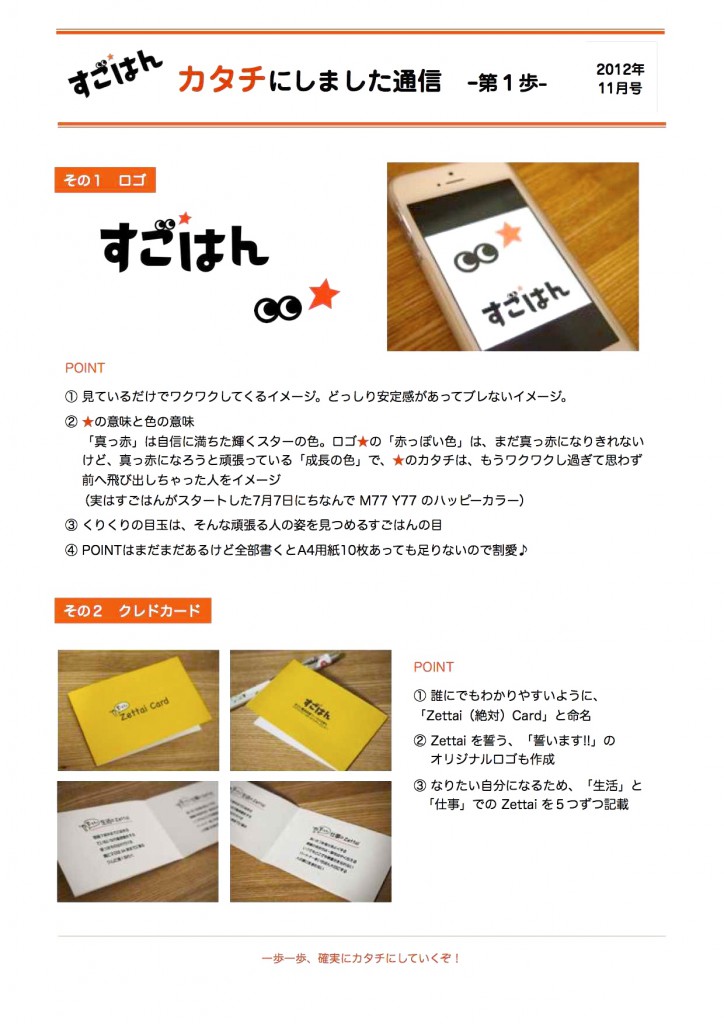 すごはん カタチにしました通信 -第1歩- 2012年
11月号
その1 ロゴ
すごはん
すごはん
POINT
① 見ているだけでワクワクしてくるイメージ。どっしり安定感があってブレないイメージ。
② ★の意味と色の意味
「真っ赤」は自信に満ちた輝くスターの色。ロゴ★の「赤っぽい色」は、まだ真っ赤になりきれない
けど、真っ赤になろうと頑張っている「成長の色」で、★のカタチは、もうワクワクし過ぎて思わず
前へ飛び出しちゃった人をイメージ
（実はすごはんがスタートした7月7日にちなんで M77 Y77 のハッピーカラー）
③ くりくりの目玉は、そんな頑張る人の姿を見つめるすごはんの目
④ POINTはまだまだあるけど全部書くとA4用紙10枚あっても足りないので割愛♪
その2 クレドカード
Zettai Card
すごはん
POINT
① 誰にでもわかりやすいように、
「Zettai（絶対）Card」と命名
② Zettai を誓う、「誓います!!」の
オリジナルロゴも作成
③ なりたい自分になるため、「生活」と
「仕事」での Zettai を５つずつ記載
一歩一歩、確実にカタチにしていくぞ！